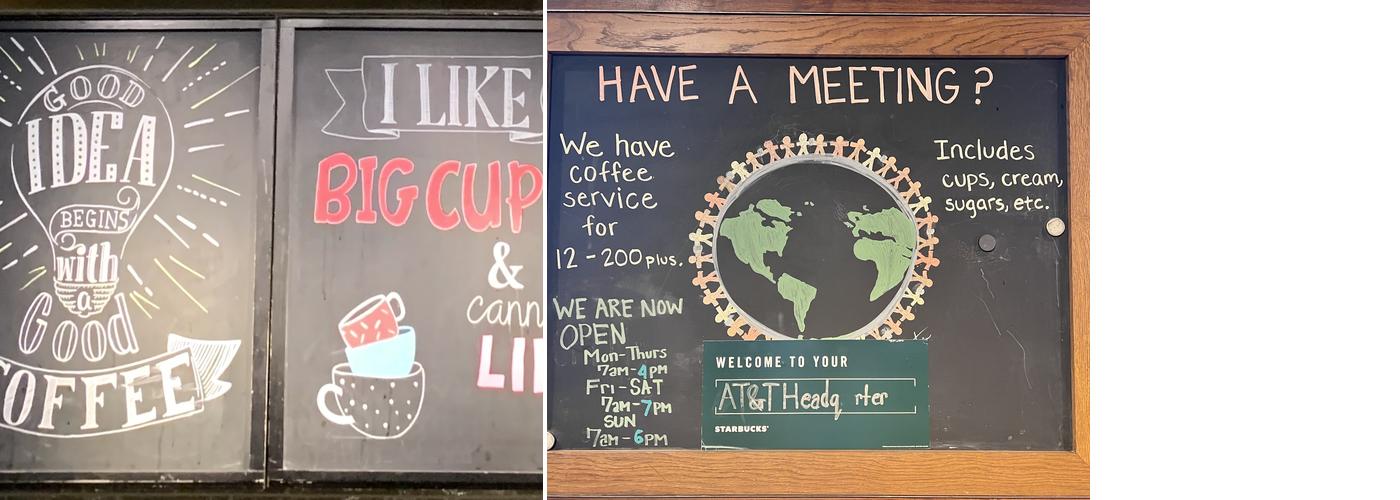 GOOD
IDEA
BEGINS
with
a
Good
COFFEE
I LIKE
BIG CUP
&
cann
LI
HAVE A MEETING?
We have
coffee
service
for
12-200 plus.
WE ARE NOW
OPEN
Mon-Thurs
7am-4pm
Fri-SAT
7am-7pm
SUN
7am-6pm
Includes
cups, cream,
sugars, etc.
WELCOME TO YOUR
AT&T Headq rter
STARBUCKS